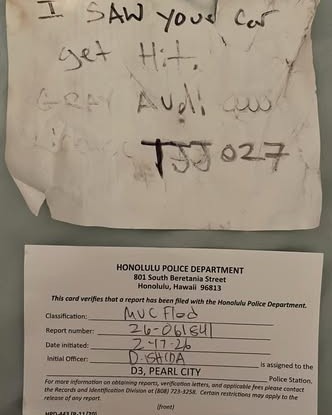 I SAW your car
get Hit.
GRAY Audi
License TJJ 027
HONOLULU POLICE DEPARTMENT
801 South Beretania Street
Honolulu, Hawaii 96813
This card verifies that a report has been filed with the Honolulu Police Department.
Classification: MVC Fled
Report number: 26-061541
Date initiated: 2-17-26
Initial Officer: D. ISHIDA is assigned to the
D3, PEARL CITY Police Station.
For more information on obtaining reports, verification letters, and applicable fees please contact
the Records and Identification Division at (808) 723-3258. Certain restrictions may apply to the
release of any report.
(front)